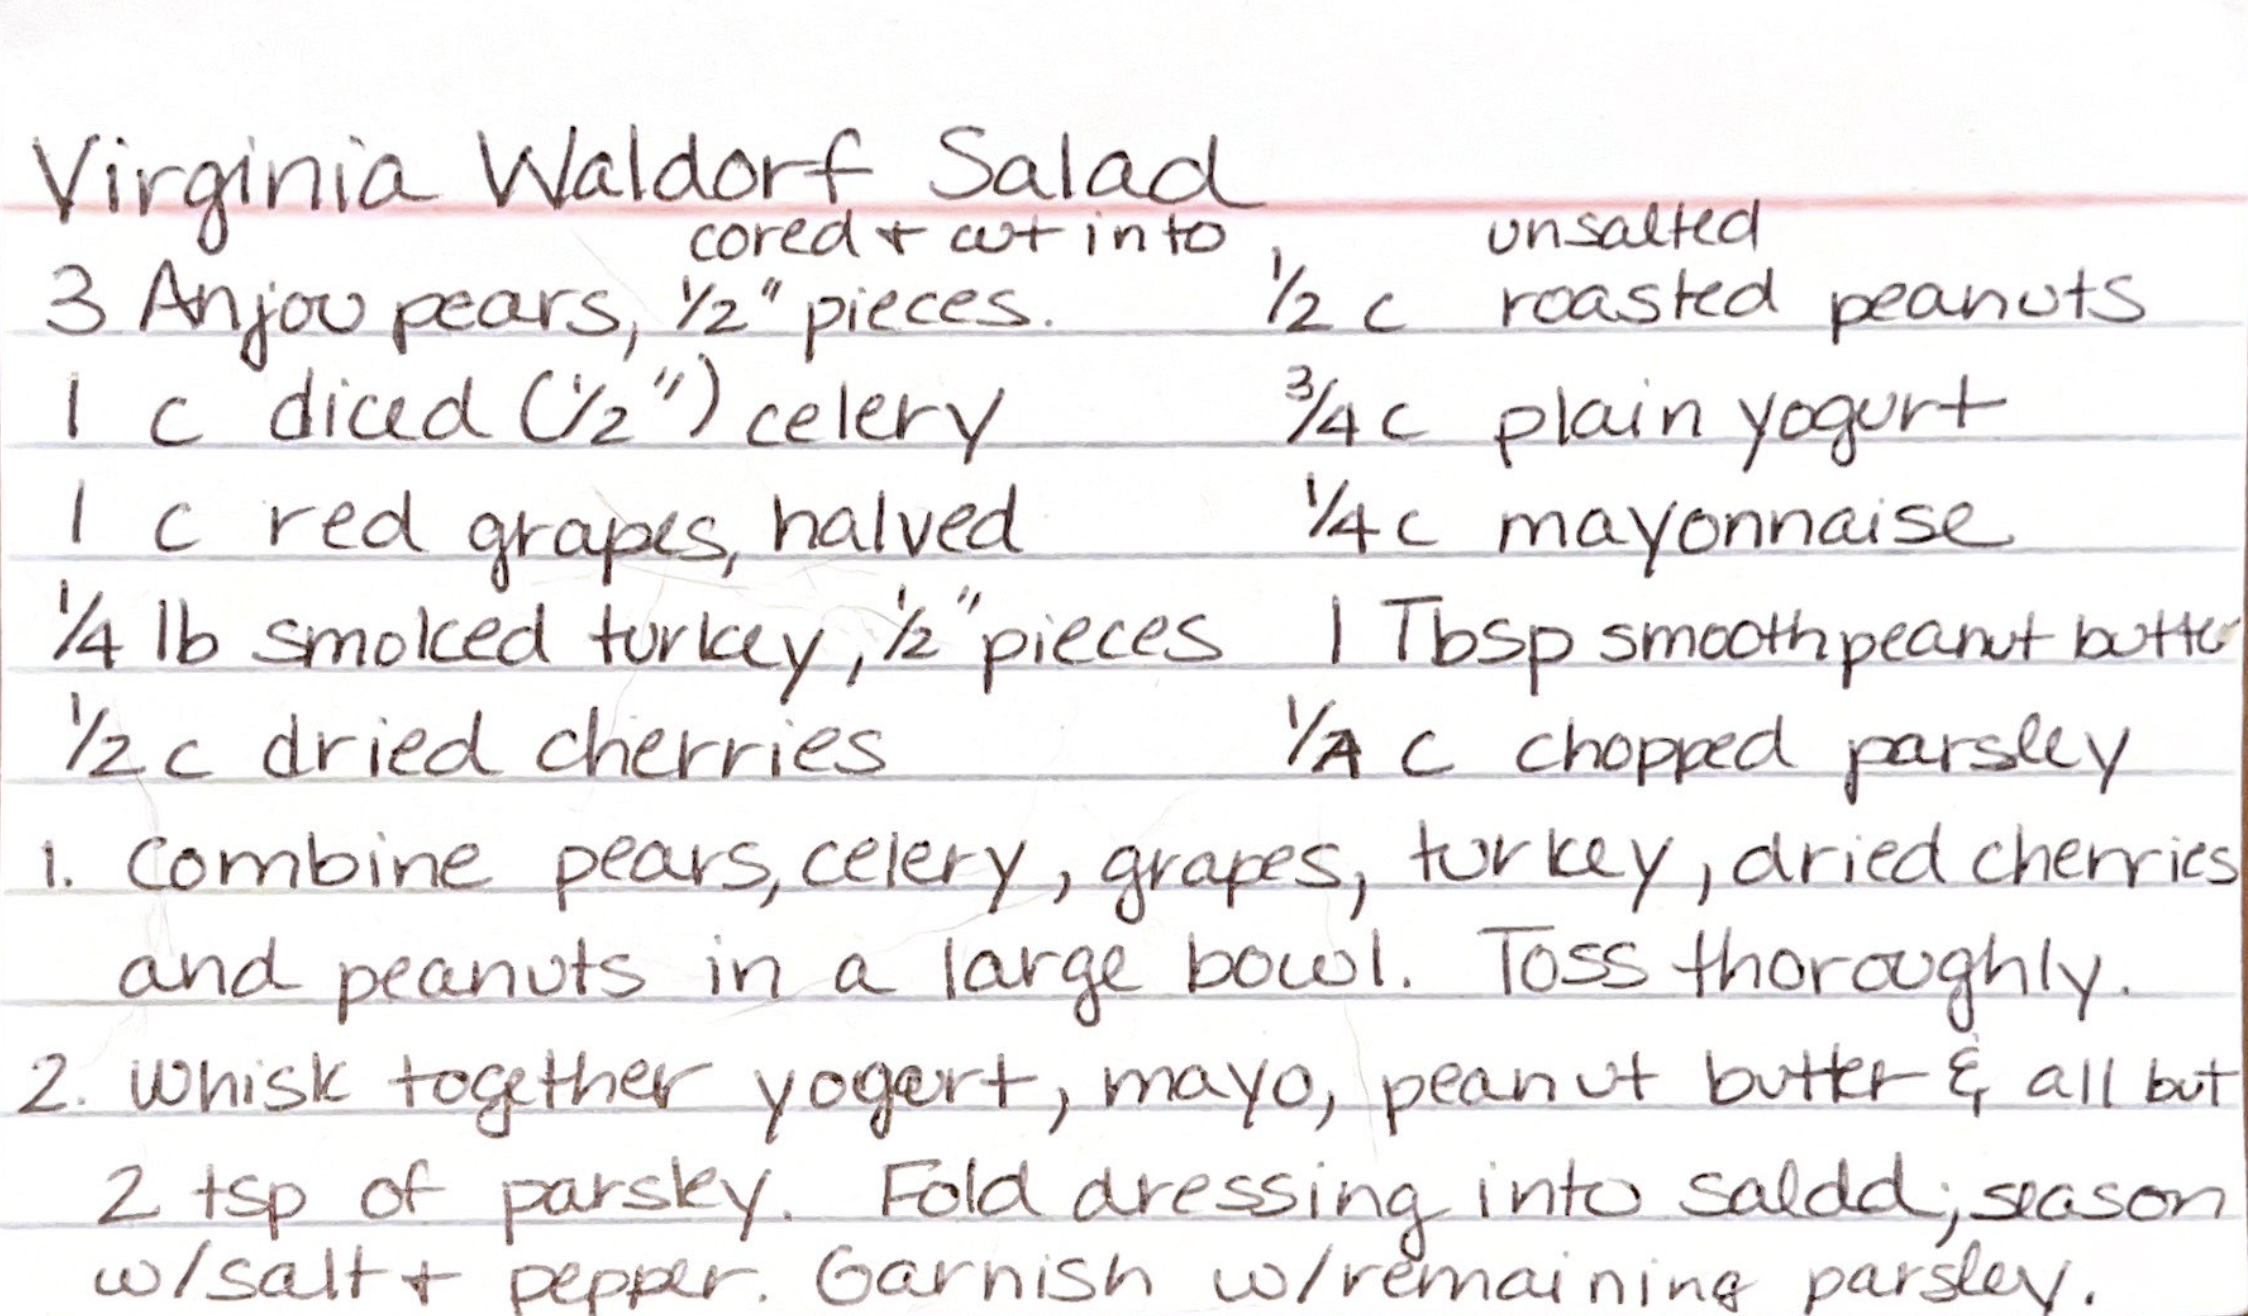 Virginia Waldorf Salad
cored + cut into
3 Anjou pears, 1/2" pieces.
1 c diced (1/2") celery
1 c red grapes, halved
1/4 lb smoked turkey, 1/2" pieces
1/2 c dried cherries
unsalted
1/2 c roasted peanuts
3/4 c plain yogurt
1/4 c mayonnaise
1 Tbsp smooth peanut butter
1/4 c chopped parsley
1. Combine pears, celery, grapes, turkey, dried cherries
and peanuts in a large bowl. Toss thoroughly.
2. Whisk together yogurt, mayo, peanut butter & all but
2 tsp of parsley. Fold dressing into salad; season
w/salt + pepper. Garnish w/remaining parsley.